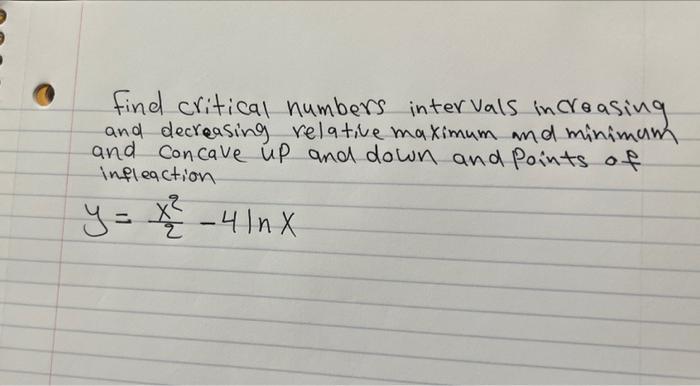 find critical numbers intervals increasing
and decreasing relative maximum and minimum
and concave up and down and Points of
infleaction
y = x²/2 - 4 ln x